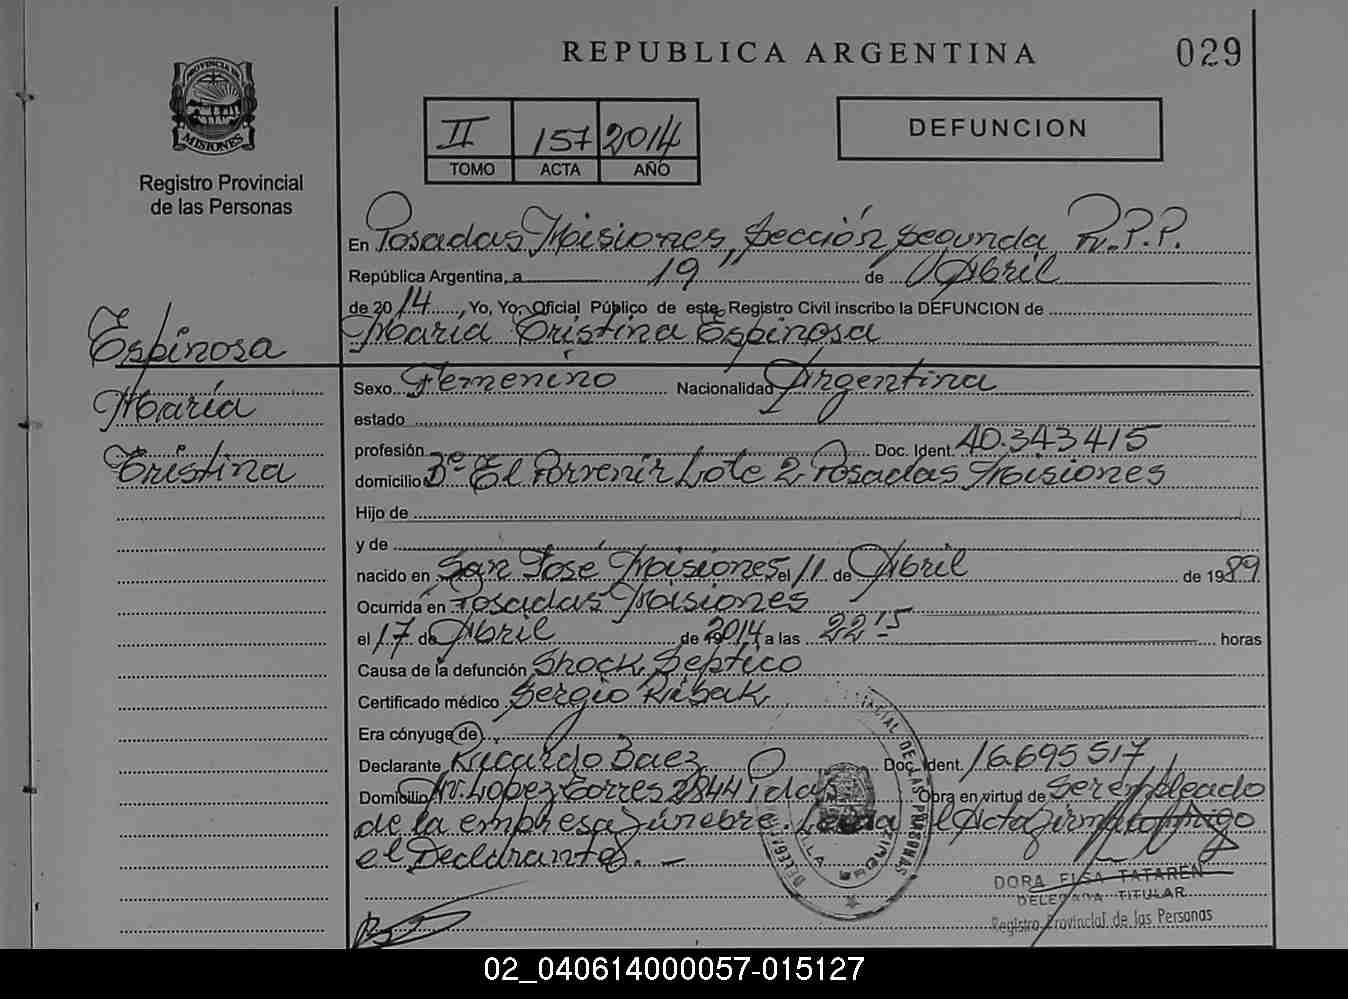 REPUBLICA ARGENTINA
029
PROVINCIA DE
MISIONES
Registro Provincial
de las Personas
II 157 2014
TOMO ACTA AÑO
DEFUNCION
En Posadas, Misiones, Sección Segunda R.P.P.
República Argentina, a 19 de Abril
de 2014, Yo, Yo, Oficial Público de este Registro Civil inscribo la DEFUNCION de
María Cristina Espinosa
Espinosa
María
Cristina
Sexo Femenino Nacionalidad Argentina
estado
profesión Doc. Ident. 40.343415
domicilio Bº El Porvenir Lote 2 Posadas Misiones
Hijo de
y de
nacido en San José Misiones el 11 de Abril de 1989
Ocurrida en Posadas Misiones
el 17 de Abril de 2014 a las 22 15 horas
Causa de la defunción Shock Septico
Certificado médico Sergio Ribak
Era cónyuge de
Declarante Ricardo Baez Doc. Ident. 16.695 517
Domicilio Av. Lopez Torres 2844 Pdas Obra en virtud de Ser empleado
de la empresa fúnebre. Leída el Acta firma
el Declarante.
DORA ELSA TATAREN
DELEGADA TITULAR
Registro Provincial de las Personas
02_040614000057-015127